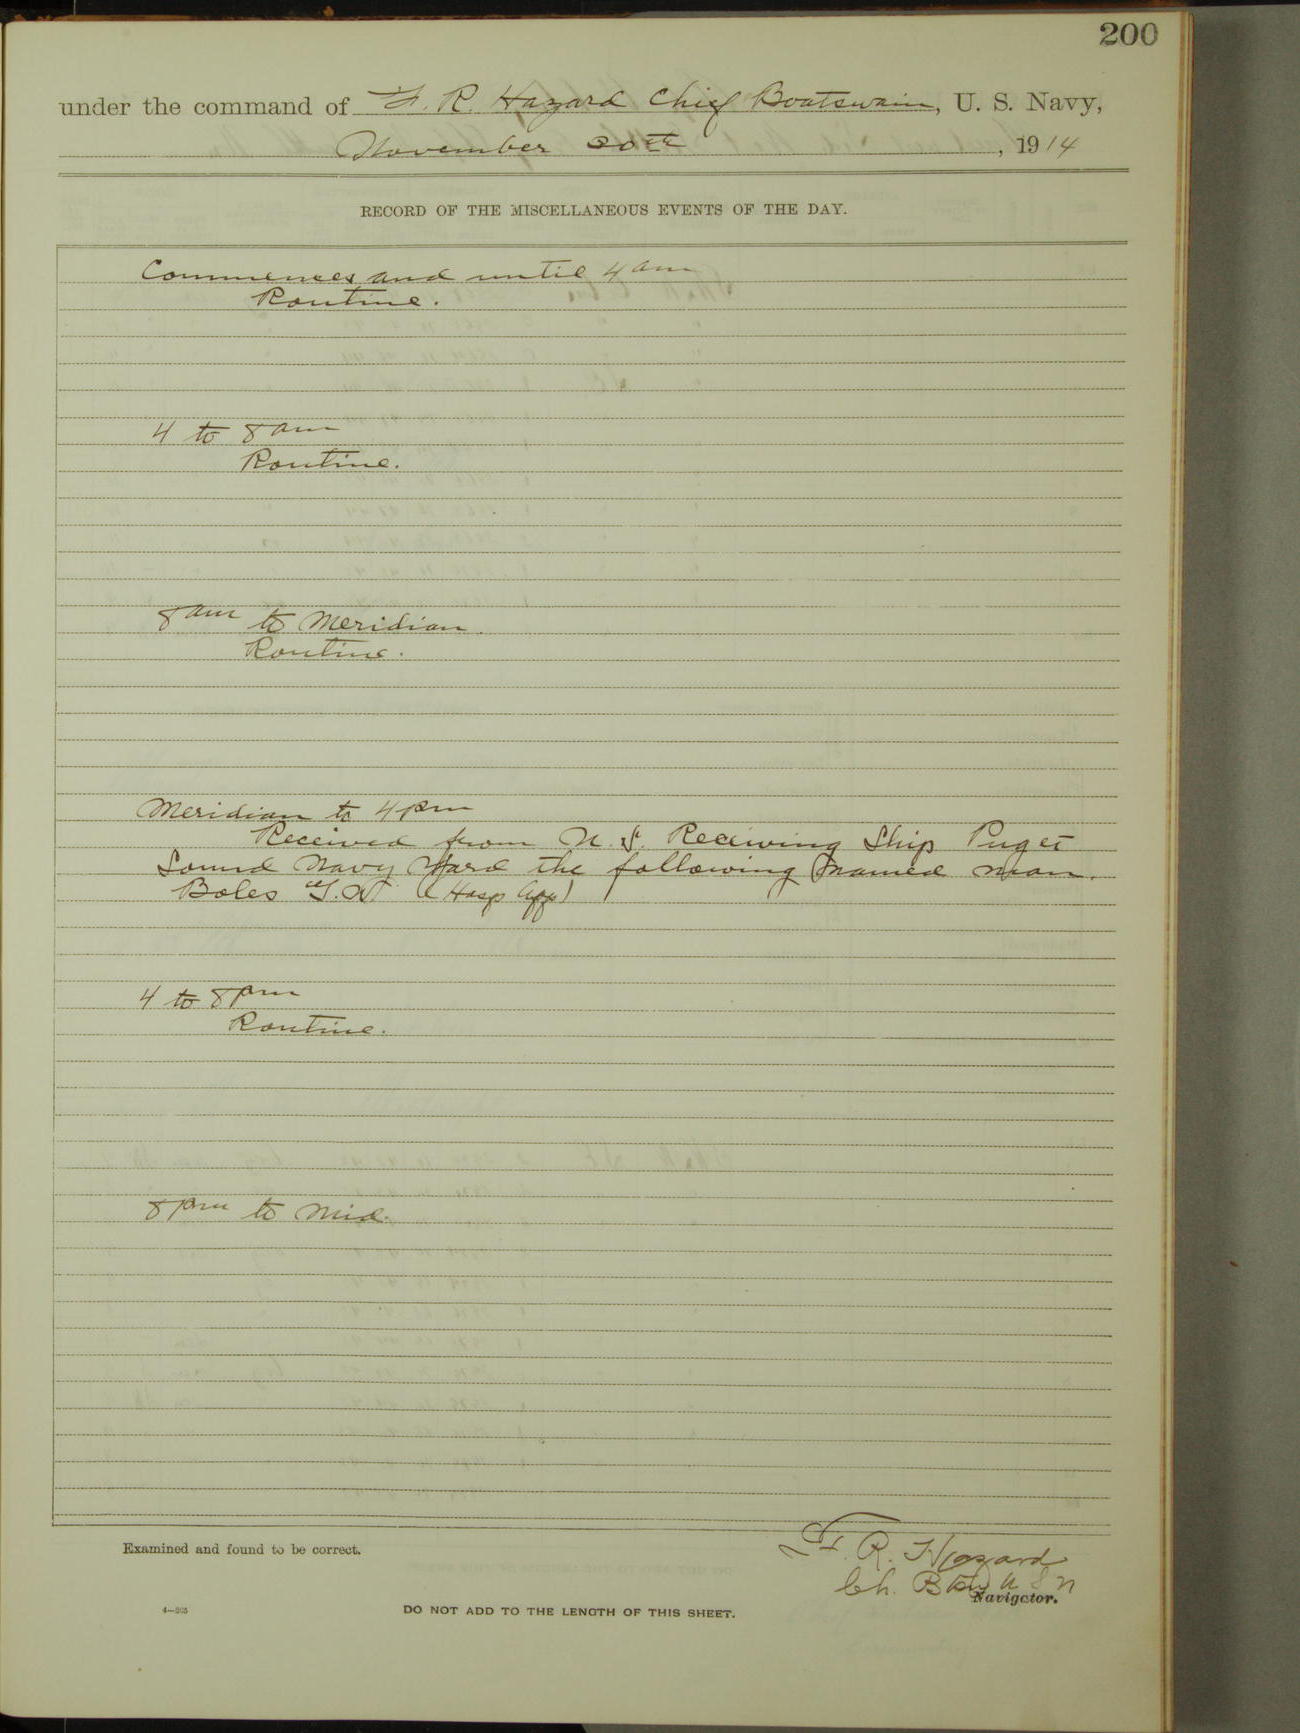 200
under the command of F. R. Hazard Chief Boatswain, U. S. Navy,
November 20th, 1914
RECORD OF THE MISCELLANEOUS EVENTS OF THE DAY.
Commences and until 4 am
Routine.
4 to 8 am
Routine.
8 am to Meridian.
Routine.
Meridian to 4 pm
Received from U. S. Receiving Ship Puget
Sound Navy Yard the following named man.
Boles (Hosp App)
4 to 8 pm
Routine.
8 pm to Mid.
F. R. Hazard
Examined and found to be correct.
Ch. Btsn U S N
Navigator.
4—205
DO NOT ADD TO THE LENGTH OF THIS SHEET.